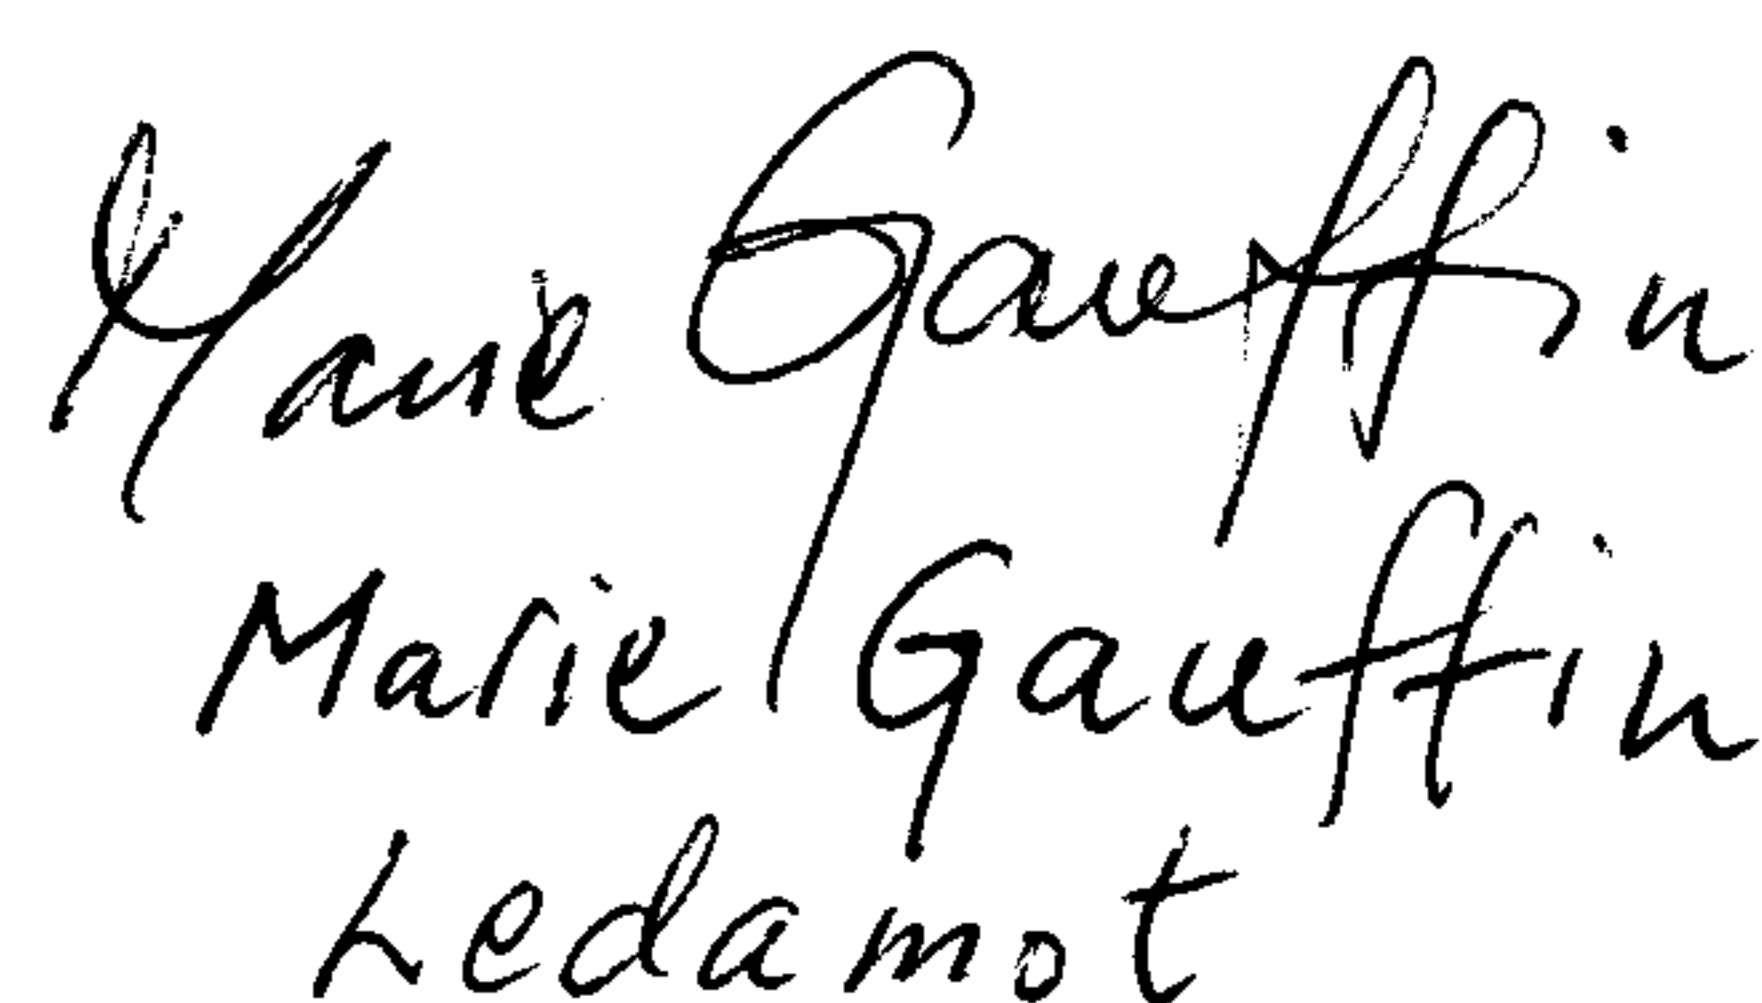 Marie Gauffin
Marie Gauffin
Ledamot